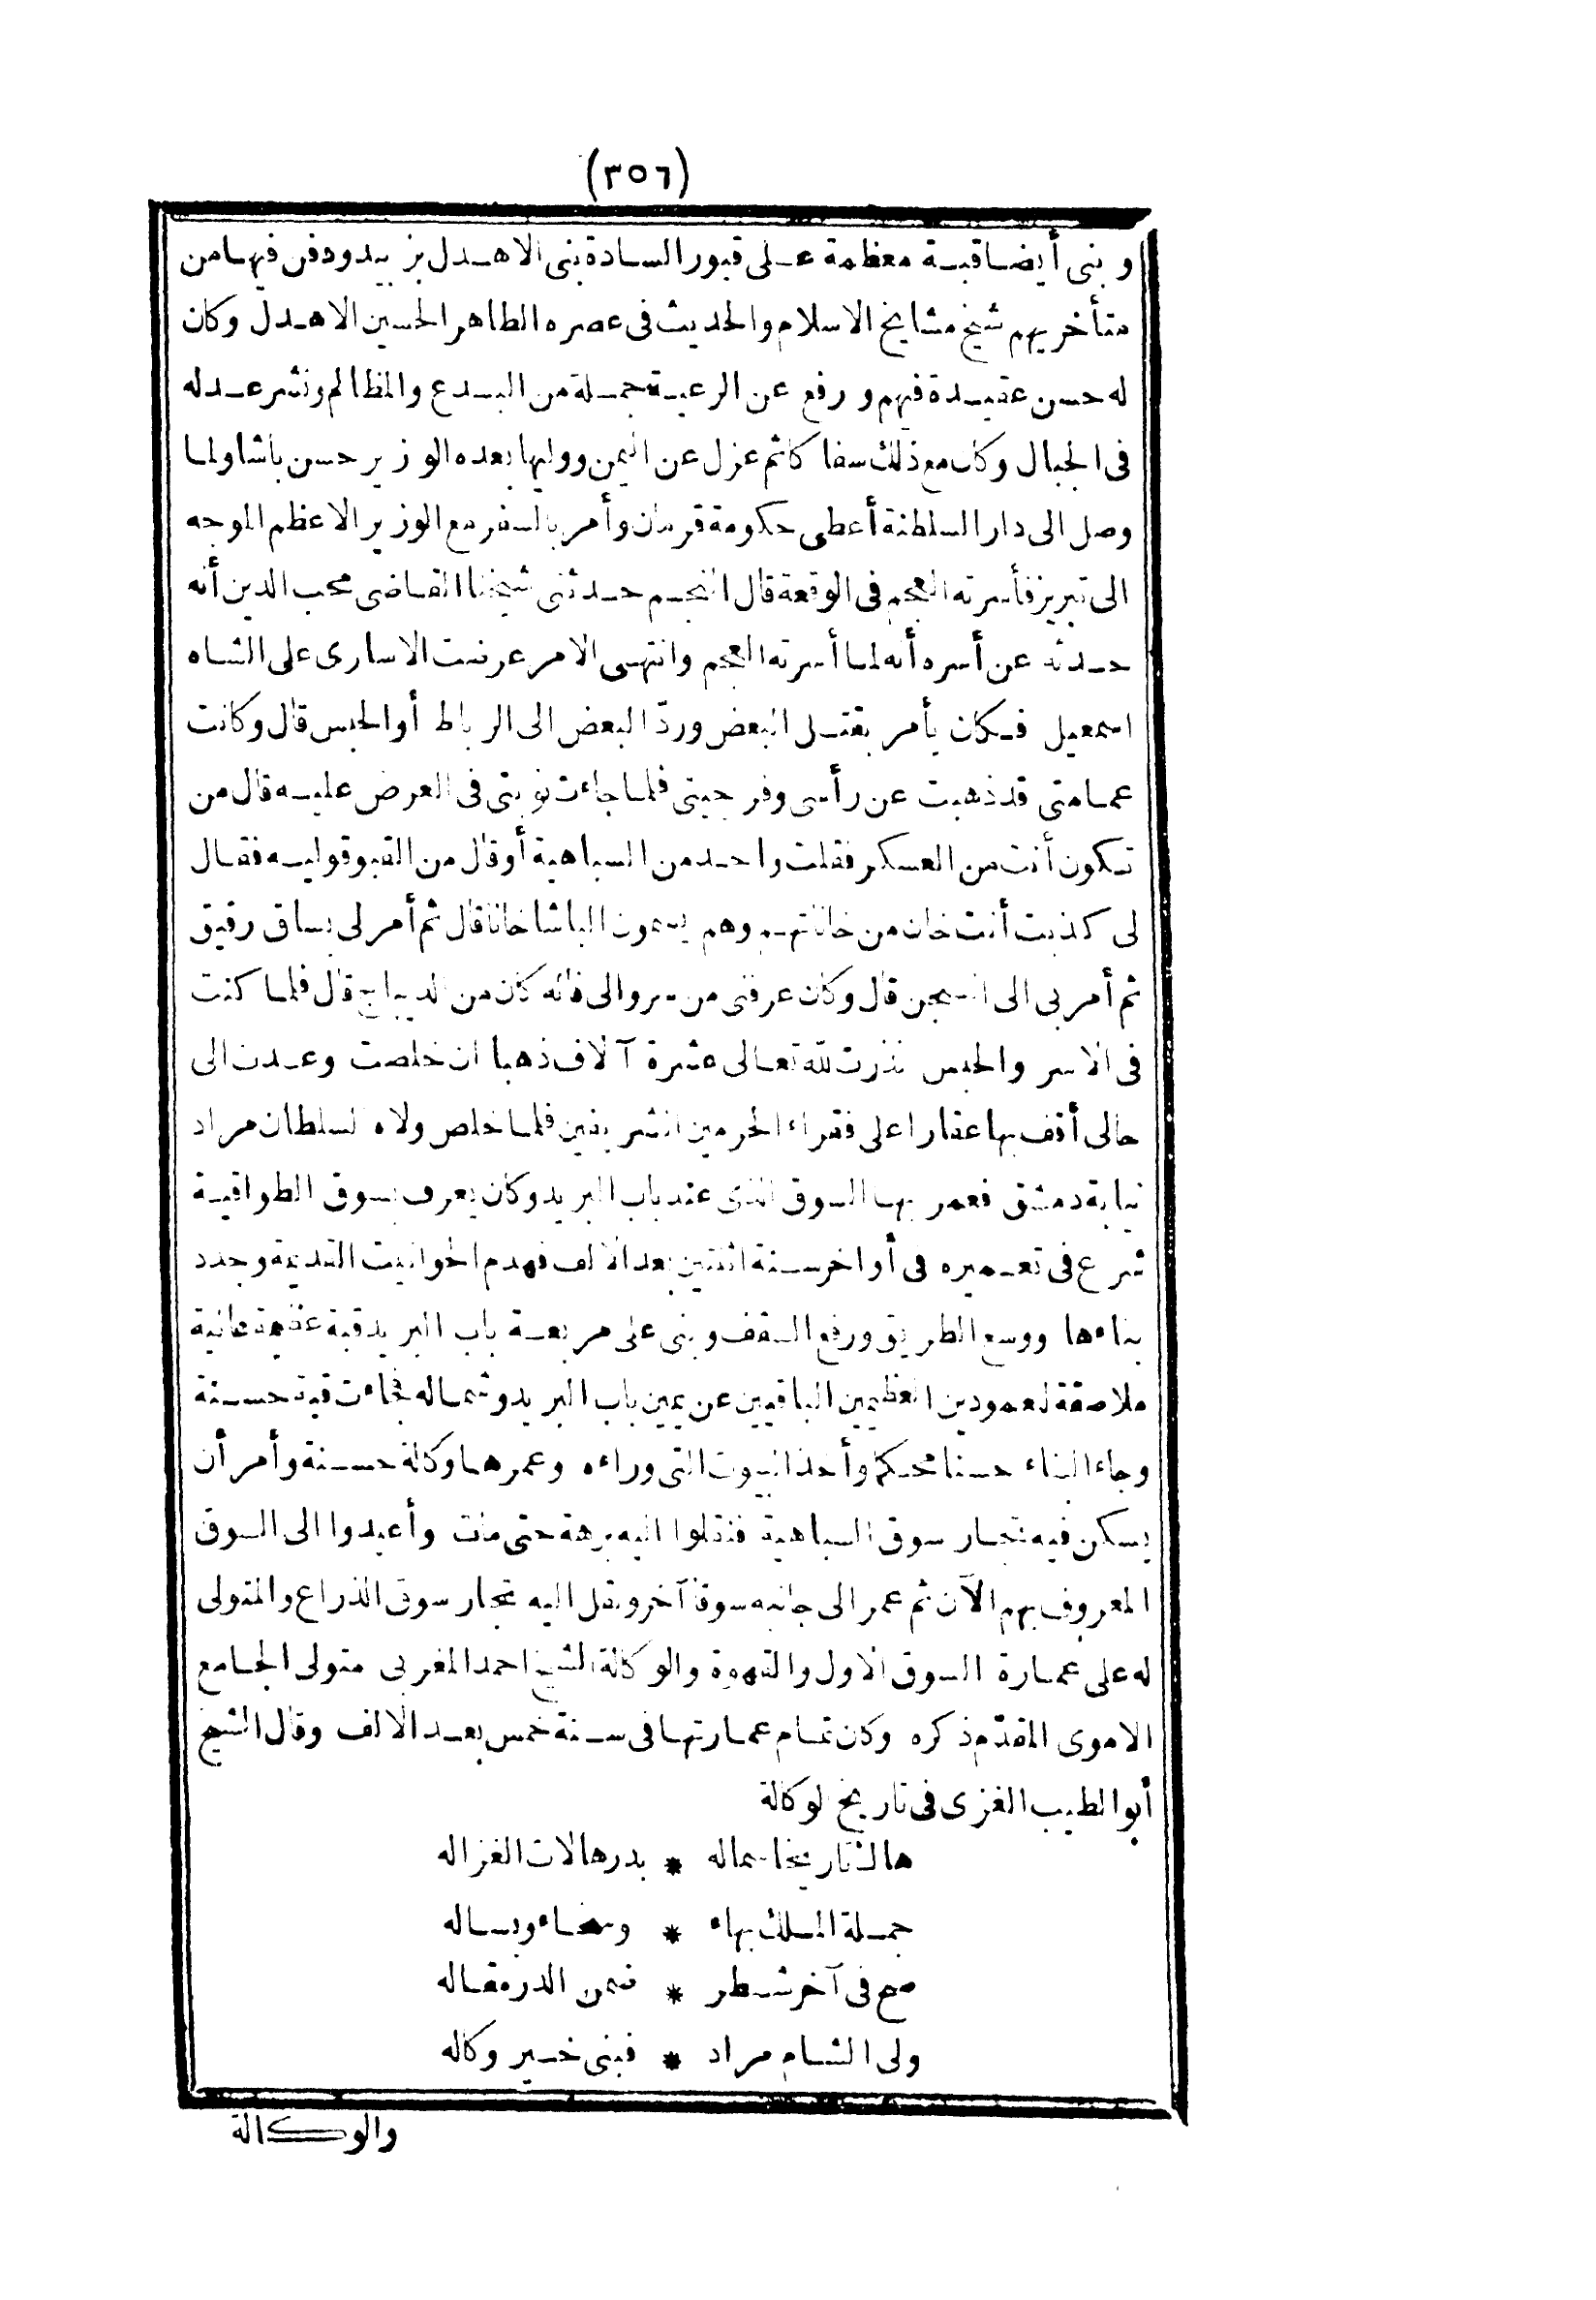 (٣٥٦)
وبنى أيضا قبة معظمة على قبور السادة بنى الاهدل بزبيد ودفن فيها من
متأخريهم شيخ مشايخ الاسلام والحديث فى عصره الطاهر الحسين الاهدل وكان
له حسن عقيدة فيهم ورفع عن الرعية جملة من البدع والمظالم ونشر عدله
فى الجبال وكان مع ذلك سفا كا ثم عزل عن اليمن ووليها بعده الوزير حسن باشا ولما
وصل الى دار السلطنة أعطى حكومة قرمان وأمر بالسفر مع الوزير الاعظم الموجه
الى تبريز فأسرته العجم فى الوقعة قال النجم حدثنى شيخنا القاضى محب الدين أنه
حدثه عن أسره أنه لما أسرته العجم وانتهى الامر عرضت الاسارى على الشاه
اسمعيل فكان يأمر بقتل البعض وردّ البعض الى الرباط أو الحبس قال وكانت
عمامتى قد ذهبت عن رأسى وفرجيتى فلما جاءت نوبتى فى العرض عليه قال من
تكون أنت من العسكر فقلت واحد من السباهية أو قال من القبوقوليه فقال
لى كذبت أنت خان من خاناتهم وهم يسمون الباشا خانا قال ثم أمر لى بساق رقيق
ثم أمر بى الى السجن قال وكان عرفنى من سروالى فانه كان من الديباج قال فلما كنت
فى الاسر والحبس نذرت لله تعالى عشرة آلاف ذهبا ان خلصت وعدت الى
حالى أقف بها عقارا على فقراء الحرمين الشريفين فلما خلص ولاه السلطان مراد
نيابة دمشق فعمر بها السوق الذى عند باب البريد وكان يعرف بسوق الطواقية
شرع فى تعميره فى أواخر سنة اثنتين بعد الالف فهدم الحوانيت القديمة وجدد
بناءها ووسع الطريق ورفع السقف وبنى على مربعة باب البريد قبة عظيمة عالية
ملاصقة لعمودين العظيمين الباقيين عن يمين باب البريد وشماله فجاءت قبة حسنة
وجاء البناء حسنا محكما وأخذ البيوت التى وراءه وعمرها وكالة حسنة وأمر أن
يسكن فيه تجار سوق السباهية فنقلوا اليه برهة حتى مات وأعيدوا الى السوق
المعروف بهم الآن ثم عمر الى جانبه سوقا آخر ونقل اليه تجار سوق الذراع والمتولى
له على عمارة السوق الاول والقهوة والوكالة الشيخ احمد المغربى متولى الجامع
الاموى المقدّم ذكره وكان تمام عمارتها فى سنة خمس بعد الالف وقال الشيخ
أبو الطيب الغزى فى تاريخ الوكالة
هاك تاريخا سماله * بدرهالات الغزاله
جملة الملك بهاء * وسخاء وبساله
صح فى آخر شطر * ضمن الدر مقاله
ولى الشام مراد * فبنى خير وكاله
والوكالة